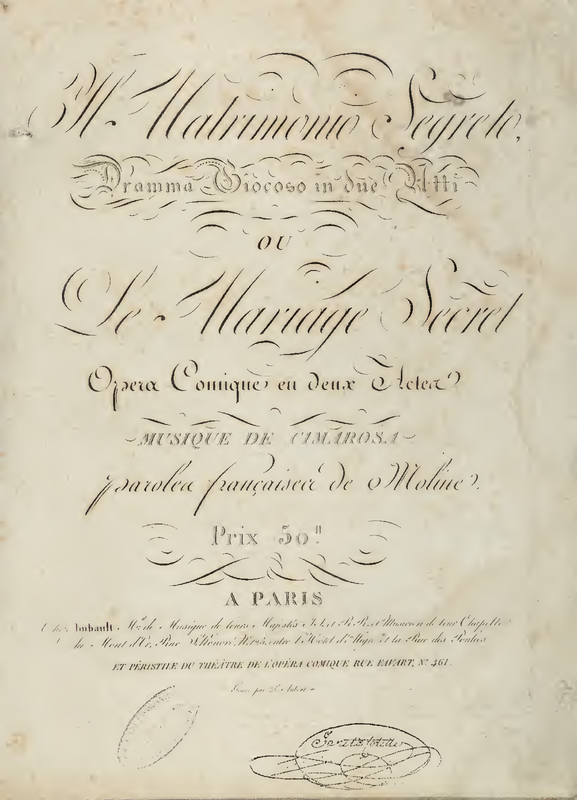 Il Matrimonio Segreto,
Dramma Giocoso in due Atti
OU
Le Mariage Secret
Opera Comique en deux Actes
MUSIQUE DE CIMAROSA
paroles françaises de Moline.
Prix 50.ᵗᵗ
A PARIS
Chez Imbault, M.ᵈ de Musique de leurs Majestés I. et R. R. et Maison de leur Chapelle
au Mont d'Or, Rue S.ᵗ Honoré N.° entre l'Hotel d' et la Rue des Poulies
ET PÉRISTILE DU THÉATRE DE L'OPÉRA COMIQUE RUE FAVART, N.° 461.
Gravé par